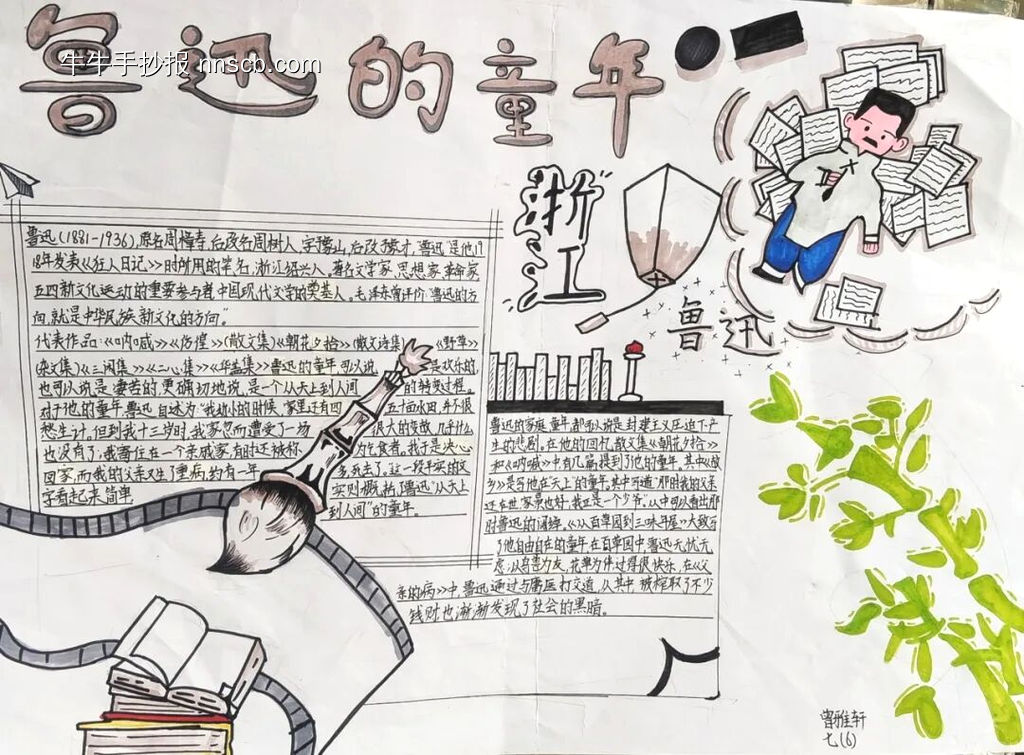 鲁迅的童年
牛牛手抄报 nnscb.com
浙江
鲁迅
鲁迅(1881-1936),原名周樟寿,后改名周树人,字豫山,后改豫才,鲁迅是他19
18年发表《狂人日记》时所用的笔名,浙江绍兴人。著名文学家,思想家,革命家
五四新文化运动的重要参与者,中国现代文学的奠基人。毛泽东曾评价"鲁迅的方
向,就是中华民族新文化的方向。"
代表作品:《呐喊》《彷徨》(散文集)《朝花夕拾》(散文诗集)《野草》
(杂文集)《三闲集》《二心集》《华盖集》鲁迅的童年,可以说是欢乐的,
也可以说是凄苦的更确切地说,是一个从天上到人间的转变过程。
对于他的童年鲁迅自述为"我幼小的时候,家里还有四五十亩水田,并不很
愁生计。但到我十三岁时,我家忽而遭受了一场很大的变故,几乎什么
也没有了;我寄住在一个亲戚家,有时还被称为乞食者。我于是决心
回家,而我的父亲又生了重病,约有一年多,死去了。这一段平实的文
字看起来简单 实则概括了鲁迅"从天上
到人间"的童年。
鲁迅的家庭童年,都可以说是封建主义压迫下产
生的悲剧。在他的回忆散文集《朝花夕拾》
和《呐喊》中有几篇提到了他的童年。其中《故
乡》是写他"在天上"的童年。其中写道"那时我的父亲
还在世,家景也好,我正是一个少爷。从中可以看出那
时鲁迅的 《从百草园到三味书屋》大致写
了他自由自在的童年,在百草园中,鲁迅无忧无
虑,以鸟兽为友,花草为伴过得很快乐。在《父
亲的病》中,鲁迅通过与庸医打交道,从其中被榨取了不少
钱财也渐渐发现了社会的黑暗。
曾雅轩
七(6)